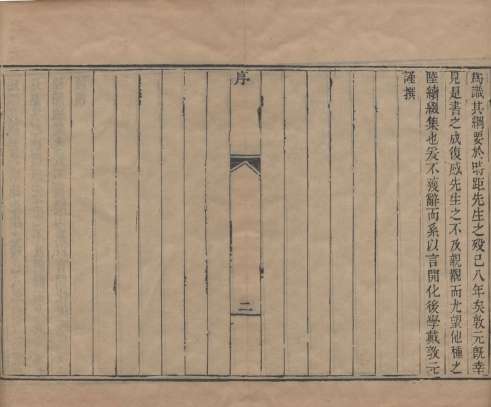 爲識其綱要於時距先生之歿已八年矣敦元旣幸
見是書之成復感先生之不及親覩而尤望他種之
陸續綴集也爰不獲辭而系以言開化後學戴敦元
謹撰
序
二